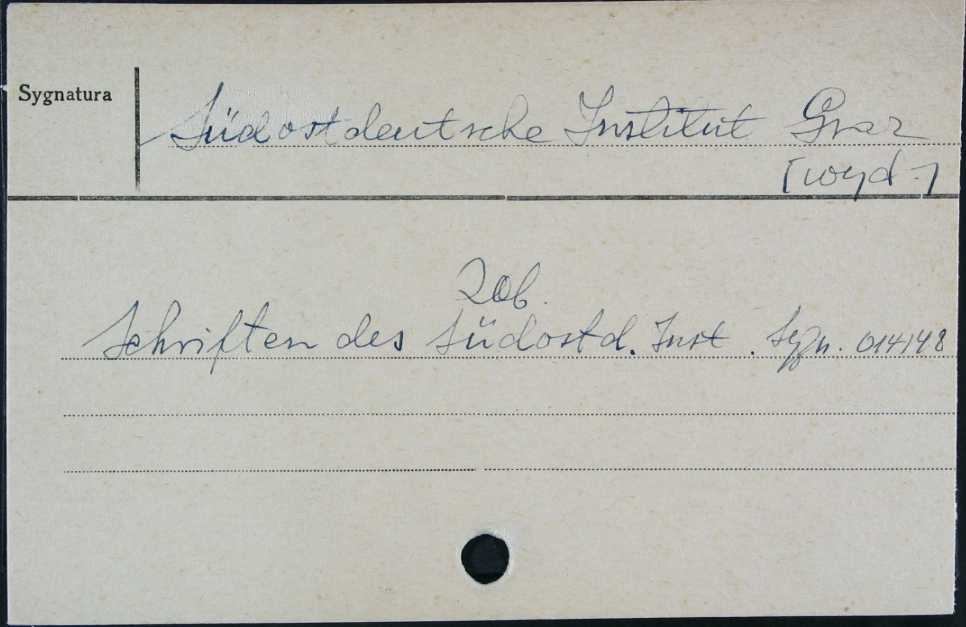 Sygnatura
Südostdeutsche Institut Graz
[wyd.]
Zob.
Schriften des Südostd. Inst. Sygn. 014148